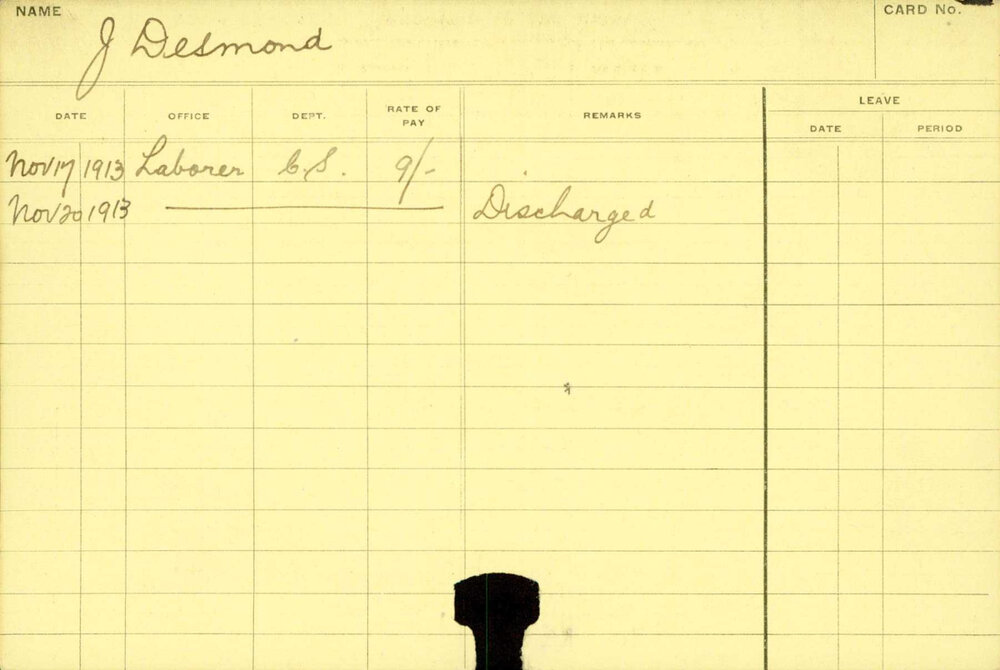 NAME
CARD No.
J Desmond
DATE OFFICE DEPT. RATE OF PAY REMARKS LEAVE
DATE PERIOD
Nov 17 1913 Laborer C.S. 9/-
Nov 20 1913 Discharged